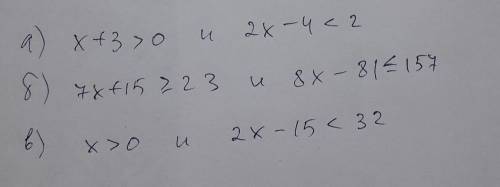 а) x+3>0 и 2x-4<2
б) 7x+15≥23 и 8x-81≤157
в) x>0 и 2x-15<32